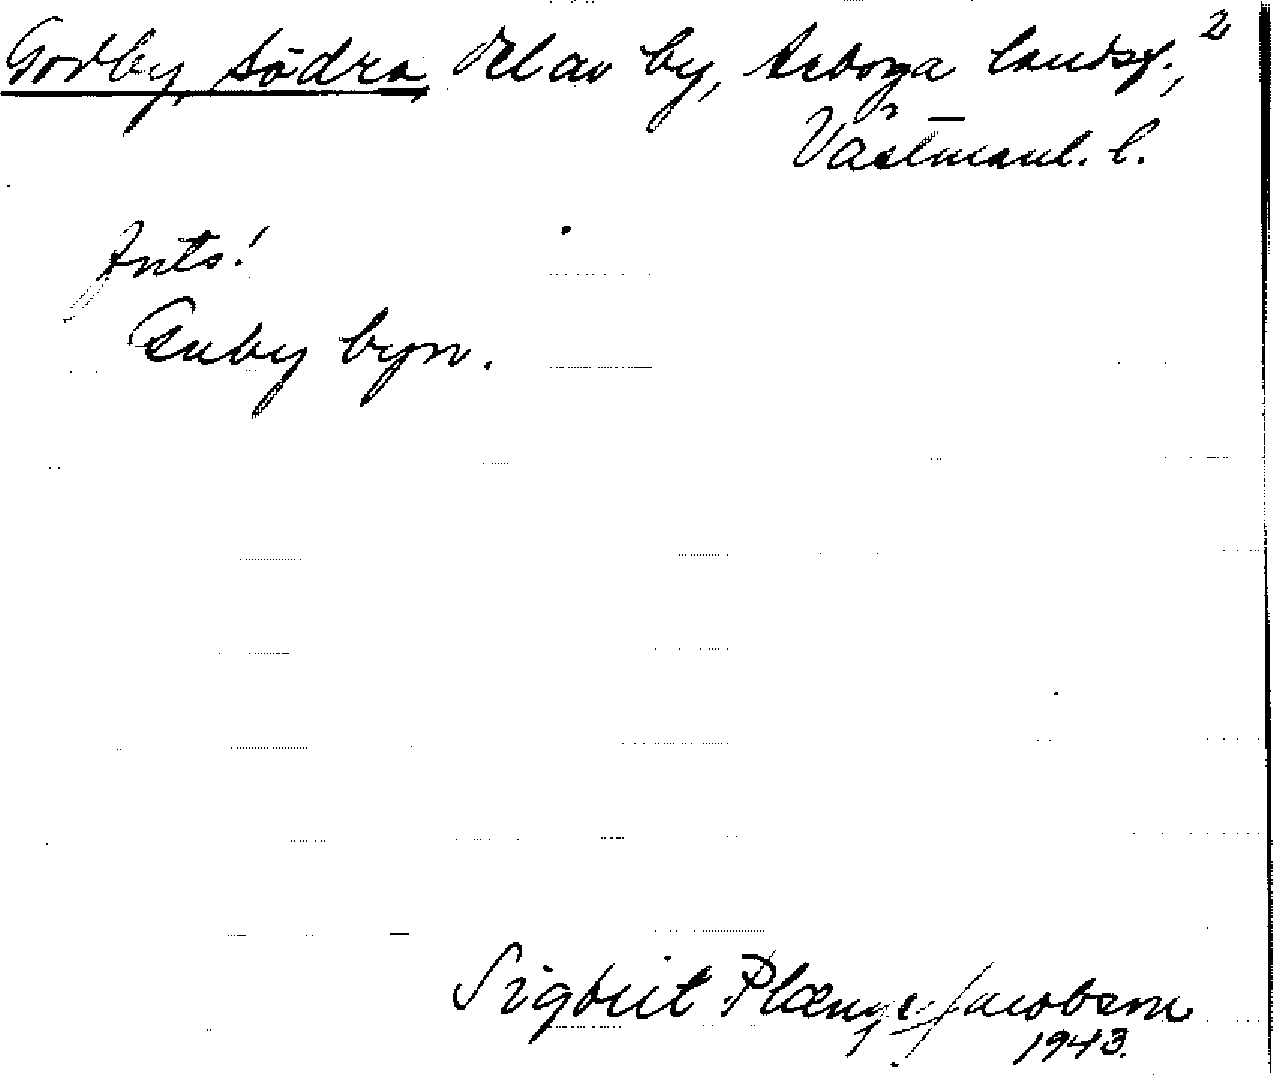 Godby, Södra, del av by, Arboga landsf., 2
Västmanl. l.
Ants!
Guby byn.
Sigbrit Plænge Jacobson
1943.